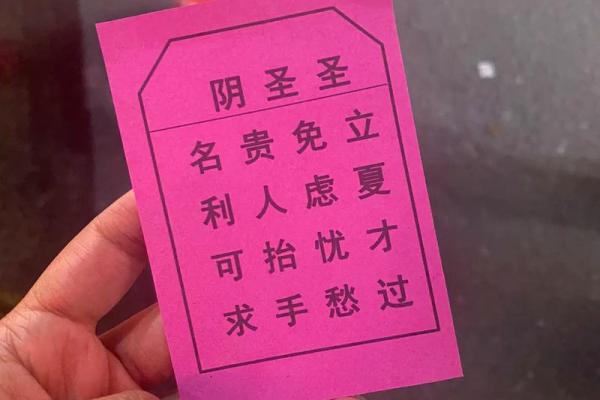 圣圣阴
立夏才过
免虑忧愁
贵人抬手
名利可求